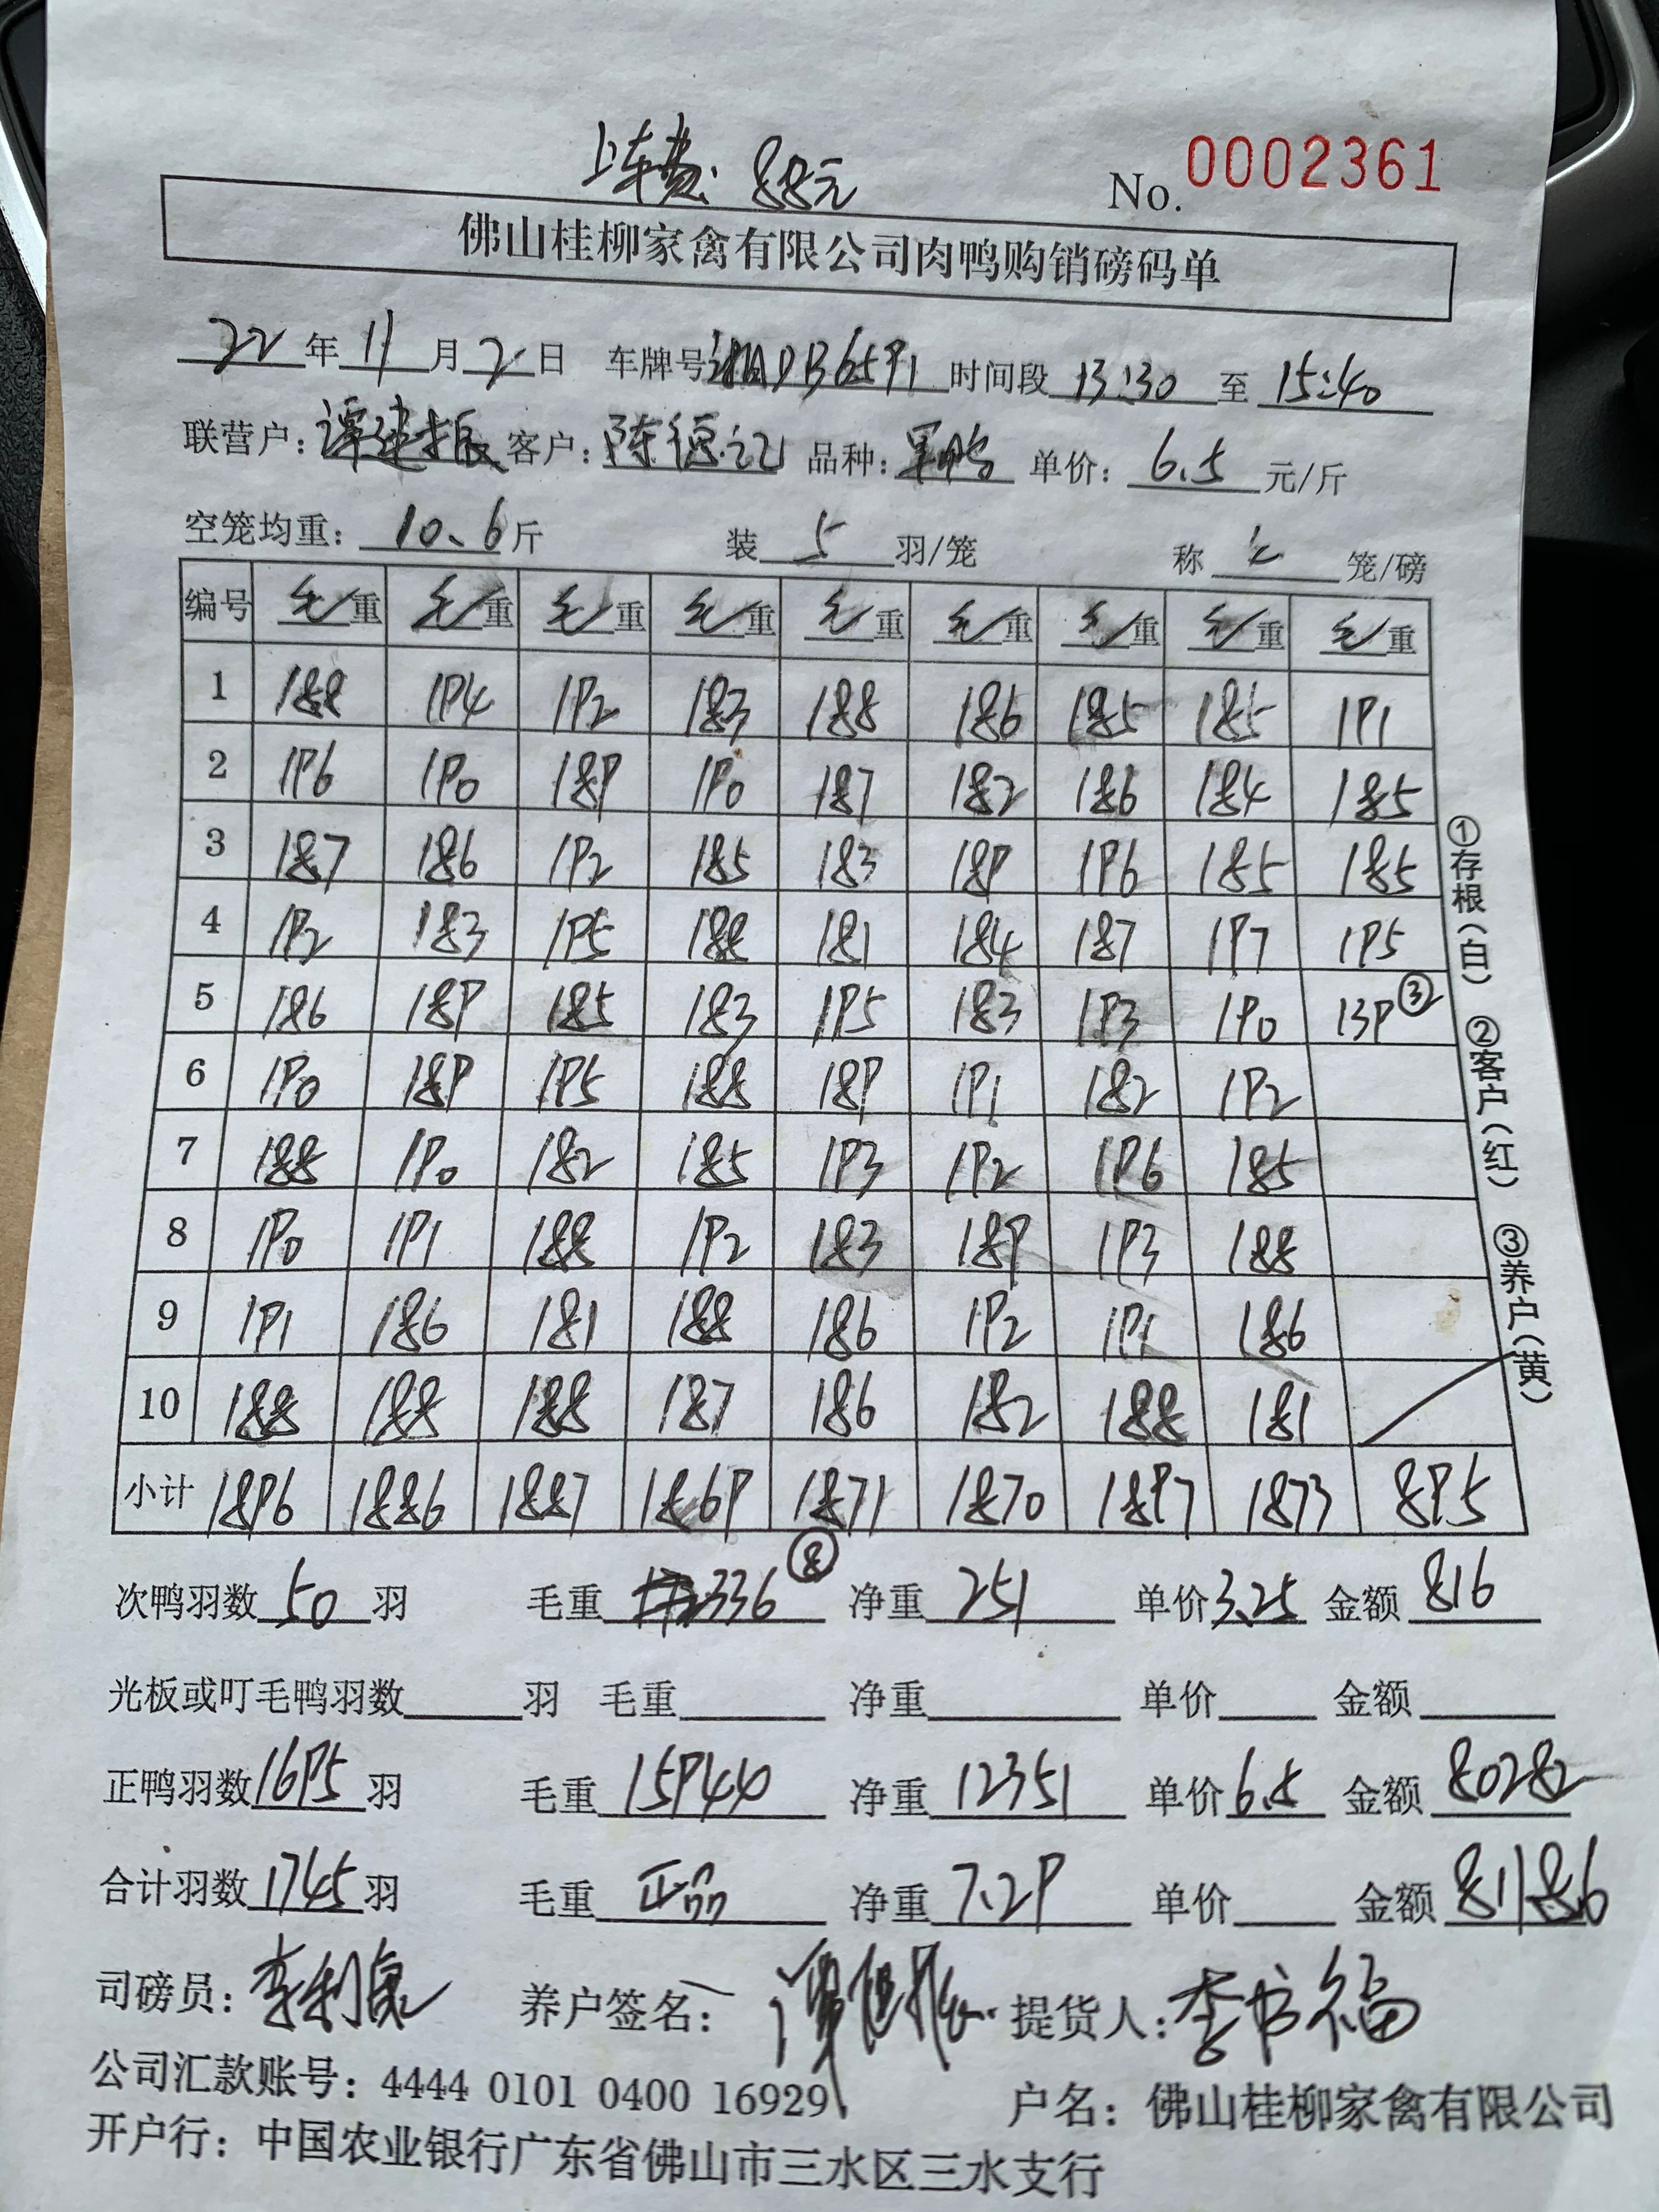 上车费: 88元
No. 0002361
佛山桂柳家禽有限公司肉鸭购销磅码单
22年11月2日 车牌号 DB6591 时间段 13:30 至 15:40
联营户: 谭建振 客户: 陈德记 品种: 单价: 6.5 元/斤
空笼均重: 10.6斤 装 5 羽/笼 称 笼/磅
编号 毛重 毛重 毛重 毛重 毛重 毛重 毛重 毛重 毛重
1 188 194 192 183 188 186 185 185 191
2 196 190 189 190 187 182 186 184 185
3 187 186 192 185 183 189 196 185 185
4 192 183 195 188 181 184 187 197 195
5 186 189 185 183 195 183 193 190 139③
6 190 189 195 188 189 191 182 192
7 188 190 182 185 193 192 196 185
8 190 191 188 192 183 189 193 188
9 191 186 181 188 186 192 191 186
10 188 188 188 187 186 182 188 181
小计 1896 1886 1887 1869 1871 1870 1897 1873 895
次鸭羽数 50 羽 毛重 336⑧ 净重 251 单价 3.25 金额 816
光板或叮毛鸭羽数 羽 毛重 净重 单价 金额
正鸭羽数 1695 羽 毛重 15944 净重 12351 单价 6.5 金额 80282
合计羽数 1745 羽 毛重 正品 净重 7.29 单价 金额 81186
司磅员: 李利泉 养户签名: 谭建振 提货人: 李书福
公司汇款账号: 4444 0101 0400 16929 户名: 佛山桂柳家禽有限公司
开户行: 中国农业银行广东省佛山市三水区三水支行
①存根(白) ②客户(红) ③养户(黄)